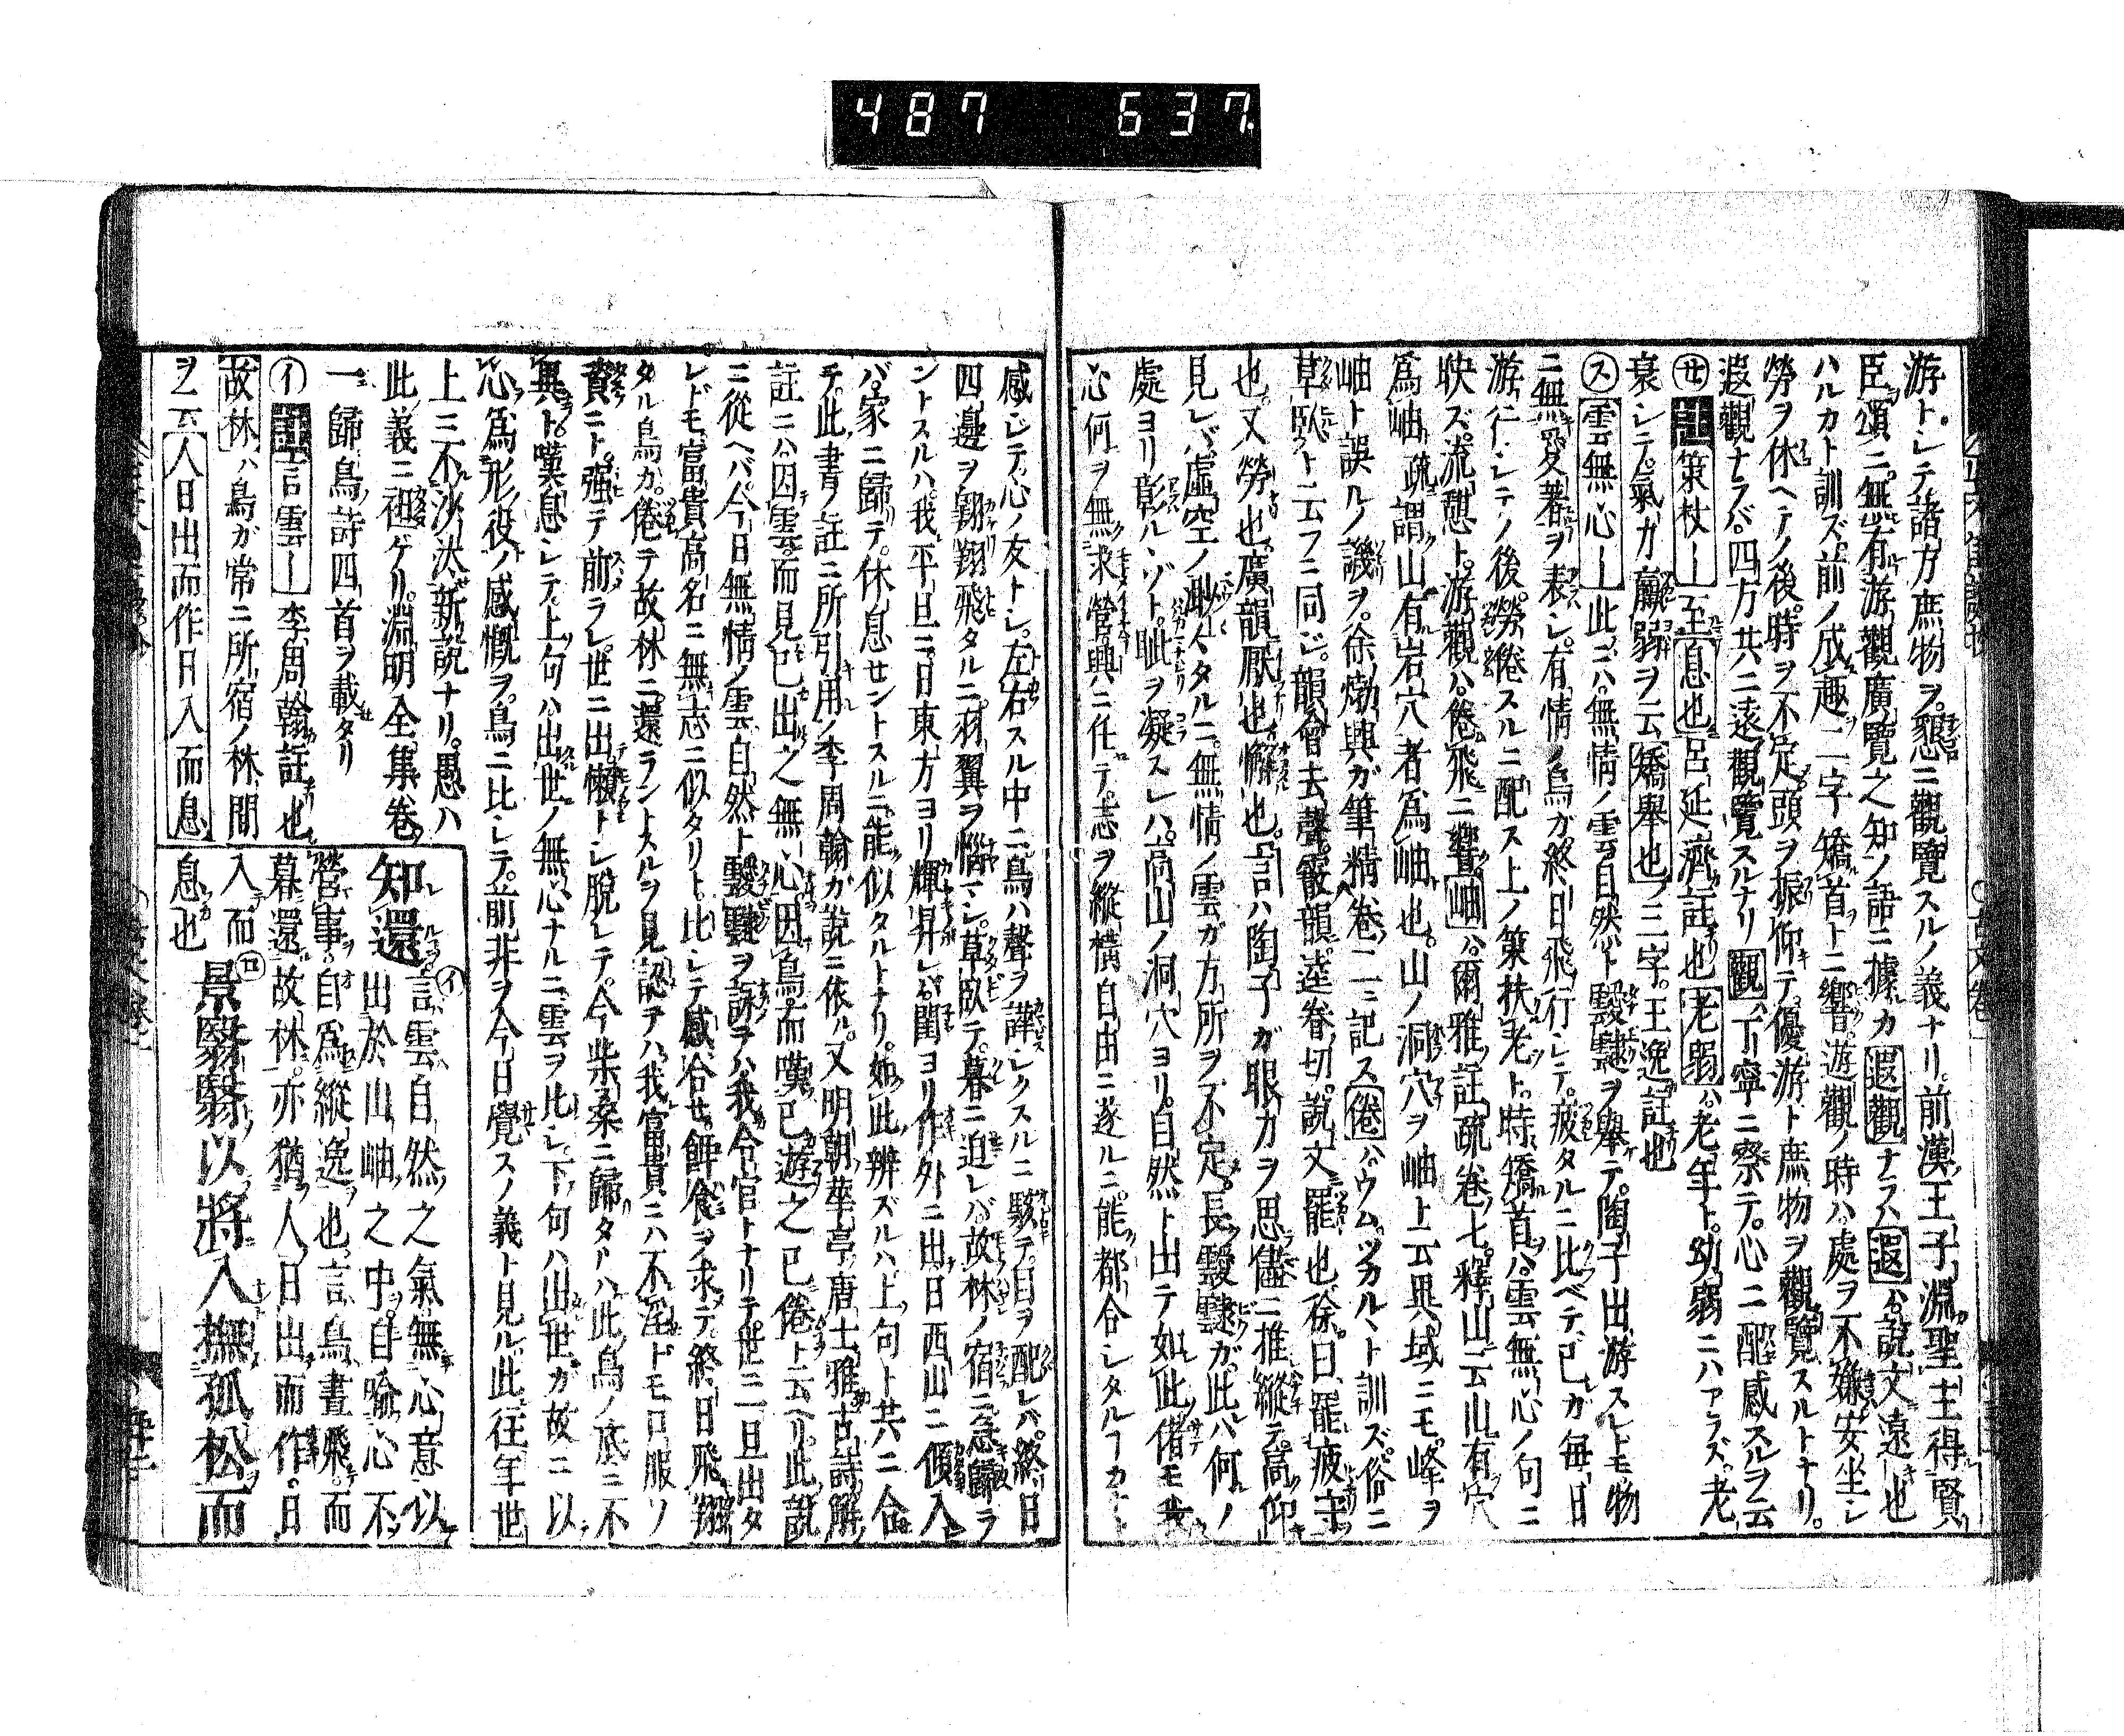 487 637
游トシテ諸方庶物ヲ懇ニ觀覽スルノ義ナリ前漢王子淵聖主得賢
臣頌ニ無有游觀廣覽之知ノ語ニ據カ遐觀ナラハ遐ハ說文遠也
ハルカト訓ズ前ノ成趣二字矯首トニ響遊觀ノ時ハ處ヲ不嫌安坐シ
勞ヲ休ヘテノ後時ヲ不定頭ヲ振仰テ優游ト庶物ヲ觀覽スルトナリ
遐觀ナラバ四方共ニ遠觀覽スルナリ觀ハ丁寧ニ察テ心ニ配感スルヲ云
サ註策杖ー至息也呂延濟註也老弱ハ老年ト幼弱ニハアラズ老
衰シテ氣力羸弱ヲ云矯舉也ノ三字王逸註也
ス雲無心ー此ニハ無情ノ雲自然ト靉靆ヲ舉テ陶子出游スレトモ物
ニ無愛著ヲ表シ有情ノ鳥ガ終日飛行シテ疲タルニ比ベテ己ガ每日
游行シテノ後勞倦スルニ配ス上ノ策扶老ト時矯首ハ雲無心ノ句ニ
映ズ流憩ト游觀ハ倦飛ニ響岫ハ爾雅註疏卷七釋山云山有穴
爲岫疏謂山有岩穴者爲岫也山ノ洞穴ヲ岫ト云異域ニモ峰ヲ
岫ト誤ルノ譏ヲ徐𤊹興ガ筆精卷二ニ記ス倦ハウムツカルヽト訓ズ俗ニ
草臥ト云フニ同ジ韻會去聲霰韻逵眷切說文罷也徐曰罷疲字
也又勞也廣韻厭也懈也言ハ陶子ガ眼力ヲ思儘ニ推縱テ高仰
見レバ虛空ノ眇々タルニ無情ノ雲ガ方所ヲ不定長靉靆ガ此ハ何ノ
處ヨリ彰ルヽゾト眦ヲ凝スレハ高山ノ洞穴ヨリ自然ト出テ如此偖モ我
心何ヲ無求營興ニ任テ志ヲ縱橫自由ニ遂ルニ能都合シタルーカナト
感シテ心ノ友トシ左右スル中ニ鳥ハ聲ヲ譁シクスルニ駭テ目ヲ配レバ終日
四邊ヲ翺翔飛タルニ羽翼ヲ惱マシ草臥テ暮ニ迫レバ故林ノ宿ニ急歸ラ
ントスルハ我平旦ニ日東方ヨリ輝昇レバ閨ヨリ作外ニ出日西山ニ傾入
バ家ニ歸テ休息セントスルニ能似タルトナリ如此辨ズルハ上句ト共ニ合
テ此書ノ註ニ所引用ノ李周翰ガ說ニ依ル又明朝華亭唐士雅古詩解
註ニハ因雲而見己出之無心因鳥而嘆己遊之已倦ト云ヘリ此說
ニ從ヘバ今日無情ノ雲自然ト靉靆ヲ詠テハ我令官トナリテ世ニ一旦出タ
レドモ富貴高名ニ無志ニ似タリト比シテ感合セ餠食ヲ求テ終日飛翔
タル鳥ガ倦テ故林ニ還ラントスルヲ見認テハ我富貴ニハ不淫ドモ口服ノ
資ニト强テ前ラレ世ニ出懶トシ脫レテ今柴桑ニ歸ターハ此鳥ノ底ニ不
異ト嘆息シテ上句ハ出世ノ無心ナルニ雲ヲ比シ下句ハ出世ガ故ニ以
心爲形役ノ感慨ヲ鳥ニ比シテ前非ヲ今日覺スノ義ト見ル此往年世
上三不沙汰新說ナリ愚ハ
此義ニ袒ゲリ淵明全集卷
一歸鳥詩四首ヲ載タリ
イ註言雲ー李周翰註也
故林ハ鳥ガ常ニ所宿ノ林間
ヲ云人日出而作日入而息
知還イ言雲自然之氣無心意似
出於山岫之中自喻心不
營事自爲縱逸也言鳥晝飛而
暮還故林亦猶人日出而作日
入而
息也
ロ景翳翳以將入撫孤松而